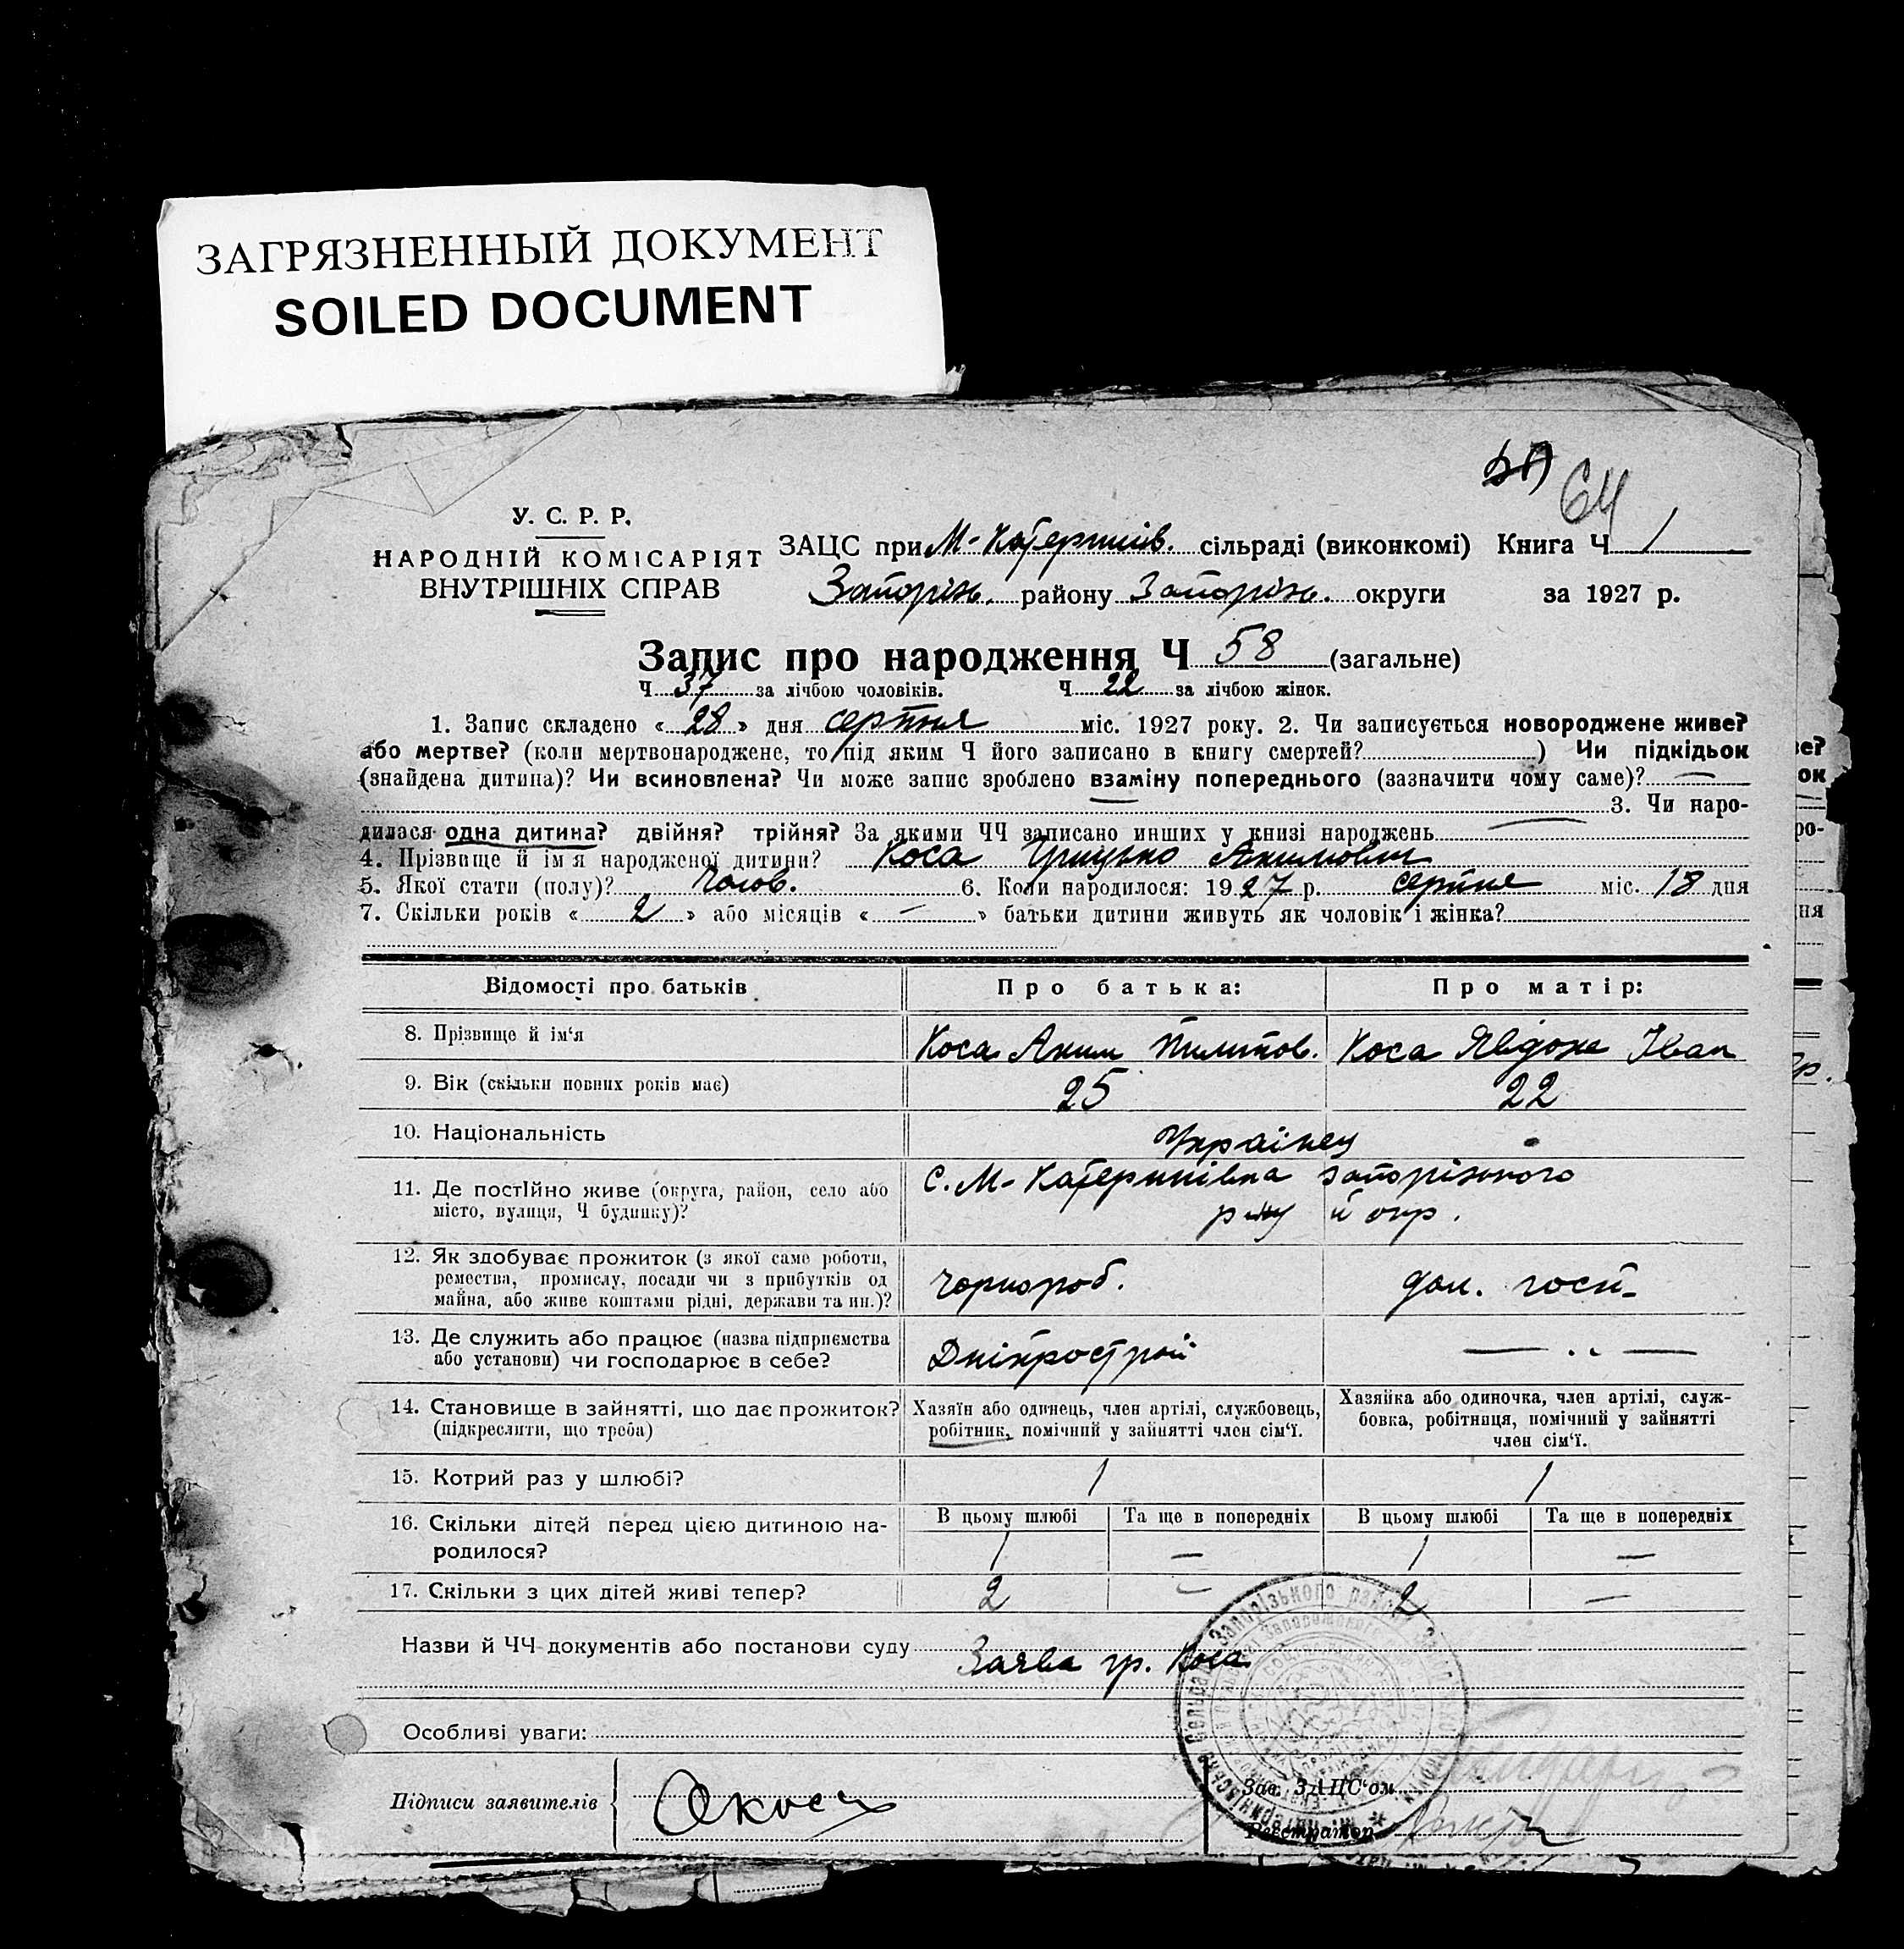 ЗАГРЯЗНЕННЫЙ ДОКУМЕНТ
SOILED DOCUMENT
64
У. С. Р. Р.
НАРОДНІЙ КОМІСАРІЯТ
ВНУТРІШНІХ СПРАВ
ЗАЦС при М-Катеринів. сільраді (виконкомі) Книга Ч 1
Запоріж. району Запоріж. округи за 1927 р.
Запис про народження Ч 58 (загальне)
Ч 37 за лічбою чоловіків. Ч 22 за лічбою жінок.
1. Запис складено « 28 » дня серпня міс. 1927 року. 2. Чи записується новороджене живе?
або мертве? (коли мертвонароджене, то під яким Ч його записано в книгу смертей? ) Чи підкідьок
(знайдена дитина)? Чи всиновлена? Чи може запис зроблено взаміну попереднього (зазначити чому саме)? —
3. Чи наро-
дилася одна дитина? двійня? трійня? За якими ЧЧ записано инших у книзі народжень —
4. Прізвище й ім'я народженої дитини? Коса Грицько Акимович
5. Якої стати (полу)? Чолов. 6. Коли народилося: 1927 р. серпня міс. 18 дня
7. Скільки років « 2 » або місяців « — » батьки дитини живуть як чоловік і жінка?
Відомості про батьків Про батька: Про матір:
8. Прізвище й ім'я Коса Аким Пилипов. Коса Явдоха Іван
9. Вік (скільки повних років має) 25 22
10. Національність Українец
11. Де постійно живе (округа, район, село або
місто, вулиця, Ч будинку)? с. М-Катеринівка запорізького
р-ну й окр.
12. Як здобуває прожиток (з якої саме роботи,
ремества, промислу, посади чи з прибутків од
майна, або живе коштами рідні, держави та ин.)? чорнороб. дом. госп-
13. Де служить або працює (назва підприємства
або установи) чи господарює в себе? Дніпрострой — „ —
14. Становище в зайнятті, що дає прожиток?
(підкреслити, що треба)
Хазяїн або одинець, член артілі, службовець,
робітник, помічний у зайнятті член сім'ї.
Хазяйка або одиночка, член артілі, служ-
бовка, робітниця, помічний у зайнятті
член сім'ї.
15. Котрий раз у шлюбі? 1 1
16. Скільки дітей перед цією дитиною на-
родилося?
В цьому шлюбі Та ще в попередніх В цьому шлюбі Та ще в попередніх
1 — 1 —
17. Скільки з цих дітей живі тепер? 2 — 2 —
Назви й ЧЧ документів або постанови суду Заява гр. Коса
Особливі уваги:
Підписи заявителів АКоса
Зав. ЗАЦС'ом
Реєстратор